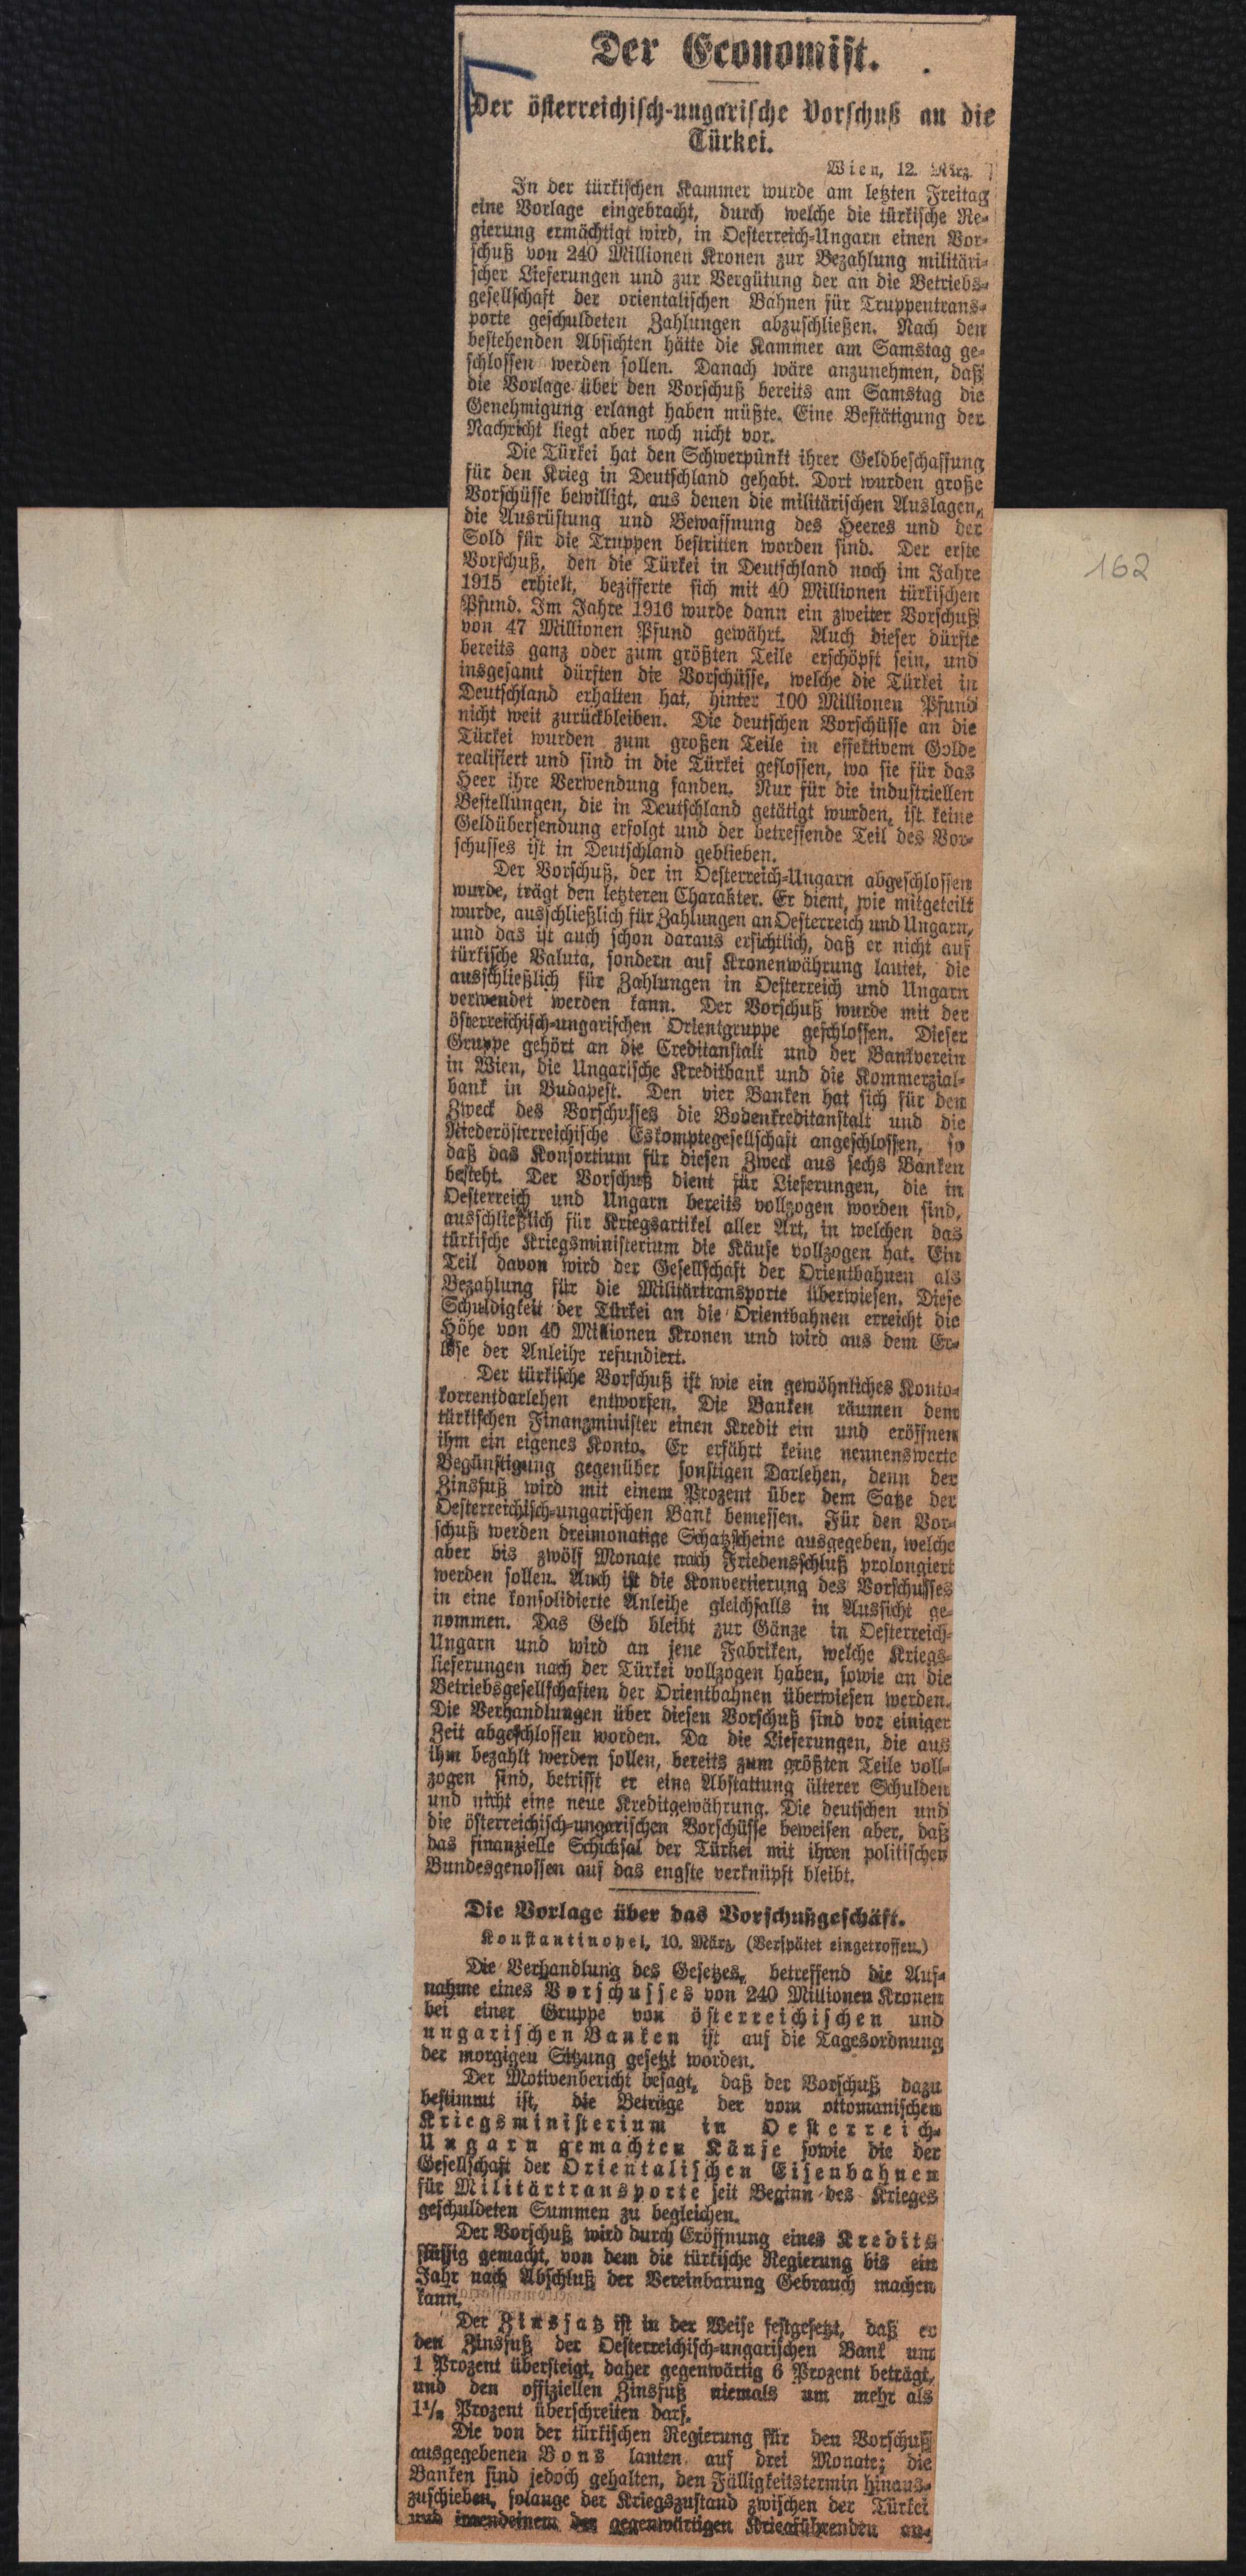 Der Economist.
Der österreichisch-ungarische Vorschuß an die
Türkei.
Wien, 12. März
In der türkischen Kammer wurde am letzten Freitag
eine Vorlage eingebracht, durch welche die türkische Re-
gierung ermächtigt wird, in Oesterreich-Ungarn einen Vor-
schuß von 240 Millionen Kronen zur Bezahlung militäri-
scher Lieferungen und zur Vergütung der an die Betriebs-
gesellschaft der orientalischen Bahnen für Truppentrans-
porte geschuldeten Zahlungen abzuschließen. Nach den
bestehenden Absichten hätte die Kammer am Samstag ge-
schlossen werden sollen. Danach wäre anzunehmen, daß
die Vorlage über den Vorschuß bereits am Samstag die
Genehmigung erlangt haben müßte. Eine Bestätigung der
Nachricht liegt aber noch nicht vor.
Die Türkei hat den Schwerpunkt ihrer Geldbeschaffung
für den Krieg in Deutschland gehabt. Dort wurden große
Vorschüsse bewilligt, aus denen die militärischen Auslagen,
die Ausrüstung und Bewaffnung des Heeres und der
Sold für die Truppen bestritten worden sind. Der erste
Vorschuß, den die Türkei in Deutschland noch im Jahre
1915 erhielt, bezifferte sich mit 40 Millionen türkischen
Pfund. Im Jahre 1916 wurde dann ein zweiter Vorschuß
von 47 Millionen Pfund gewährt. Auch dieser dürfte
bereits ganz oder zum größten Teile erschöpft sein, und
insgesamt dürften die Vorschüsse, welche die Türkei in
Deutschland erhalten hat, hinter 100 Millionen Pfund
nicht weit zurückbleiben. Die deutschen Vorschüsse an die
Türkei wurden zum großen Teile in effektivem Golde
realisiert und sind in die Türkei geflossen, wo sie für das
Heer ihre Verwendung fanden. Nur für die industriellen
Bestellungen, die in Deutschland getätigt wurden, ist keine
Geldübersendung erfolgt und der betreffende Teil des Vor-
schusses ist in Deutschland geblieben.
Der Vorschuß, der in Oesterreich-Ungarn abgeschlossen
wurde, trägt den letzteren Charakter. Er dient, wie mitgeteilt
wurde, ausschließlich für Zahlungen an Oesterreich und Ungarn,
und das ist auch schon daraus ersichtlich, daß er nicht auf
türkische Valuta, sondern auf Kronenwährung lautet, die
ausschließlich für Zahlungen in Oesterreich und Ungarn
verwendet werden kann. Der Vorschuß wurde mit der
österreichisch-ungarischen Orientgruppe geschlossen. Dieser
Gruppe gehört an die Creditanstalt und der Bankverein
in Wien, die Ungarische Kreditbank und die Kommerzial-
bank in Budapest. Den vier Banken hat sich für den
Zweck des Vorschusses die Bodenkreditanstalt und die
Niederösterreichische Eskomptegesellschaft angeschlossen, so
daß das Konsortium für diesen Zweck aus sechs Banken
besteht. Der Vorschuß dient für Lieferungen, die in
Oesterreich und Ungarn bereits vollzogen worden sind,
ausschließlich für Kriegsartikel aller Art, in welchen das
türkische Kriegsministerium die Käufe vollzogen hat. Ein
Teil davon wird der Gesellschaft der Orientbahnen als
Bezahlung für die Militärtransporte überwiesen. Diese
Schuldigkeit der Türkei an die Orientbahnen erreicht die
Höhe von 40 Millionen Kronen und wird aus dem Er-
löse der Anleihe refundiert.
Der türkische Vorschuß ist wie ein gewöhnliches Konto-
korrentdarlehen entworfen. Die Banken räumen dem
türkischen Finanzminister einen Kredit ein und eröffnen
ihm ein eigenes Konto. Er erfährt keine nennenswerte
Begünstigung gegenüber sonstigen Darlehen, denn der
Zinsfuß wird mit einem Prozent über dem Satze der
Oesterreichisch-ungarischen Bank bemessen. Für den Vor-
schuß werden dreimonatige Schatzscheine ausgegeben, welche
aber bis zwölf Monate nach Friedensschluß prolongiert
werden sollen. Auch ist die Konvertierung des Vorschusses
in eine konsolidierte Anleihe gleichfalls in Aussicht ge-
nommen. Das Geld bleibt zur Gänze in Oesterreich-
Ungarn und wird an jene Fabriken, welche Kriegs-
lieferungen nach der Türkei vollzogen haben, sowie an die
Betriebsgesellschaften der Orientbahnen überwiesen werden.
Die Verhandlungen über diesen Vorschuß sind vor einiger
Zeit abgeschlossen worden. Da die Lieferungen, die aus
ihm bezahlt werden sollen, bereits zum größten Teile voll-
zogen sind, betrifft er eine Abstattung älterer Schulden
und nicht eine neue Kreditgewährung. Die deutschen und
die österreichisch-ungarischen Vorschüsse beweisen aber, daß
das finanzielle Schicksal der Türkei mit ihren politischen
Bundesgenossen auf das engste verknüpft bleibt.
Die Vorlage über das Vorschußgeschäft.
Konstantinopel, 10. März. (Verspätet eingetroffen.)
Die Verhandlung des Gesetzes, betreffend die Auf-
nahme eines Vorschusses von 240 Millionen Kronen
bei einer Gruppe von österreichischen und
ungarischen Banken ist auf die Tagesordnung
der morgigen Sitzung gesetzt worden.
Der Motivenbericht besagt, daß der Vorschuß dazu
bestimmt ist, die Beträge der vom ottomanischen
Kriegsministerium in Oesterreich-
Ungarn gemachten Känfe sowie die der
Gesellschaft der Orientalischen Eisenbahnen
für Militärtransporte seit Beginn des Krieges
geschuldeten Summen zu begleichen.
Der Vorschuß wird durch Eröffnung eines Kredits
flüssig gemacht, von dem die türkische Regierung bis ein
Jahr nach Abschluß der Vereinbarung Gebrauch machen
kann.
Der Zinssatz ist in der Weise festgesetzt, daß er
den Zinsfuß der Oesterreichisch-ungarischen Bank um
1 Prozent übersteigt, daher gegenwärtig 6 Prozent beträgt,
und den offiziellen Zinsfuß niemals um mehr als
1½ Prozent überschreiten darf.
Die von der türkischen Regierung für den Vorschuß
ausgegebenen Bons lauten auf drei Monate; die
Banken sind jedoch gehalten, den Fälligkeitstermin hinaus-
zuschieben, solange der Kriegszustand zwischen der Türkei
und irgendeinem der gegenwärtigen Kriegführenden an-
162